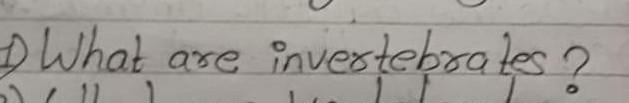 1) What are invertebrates?